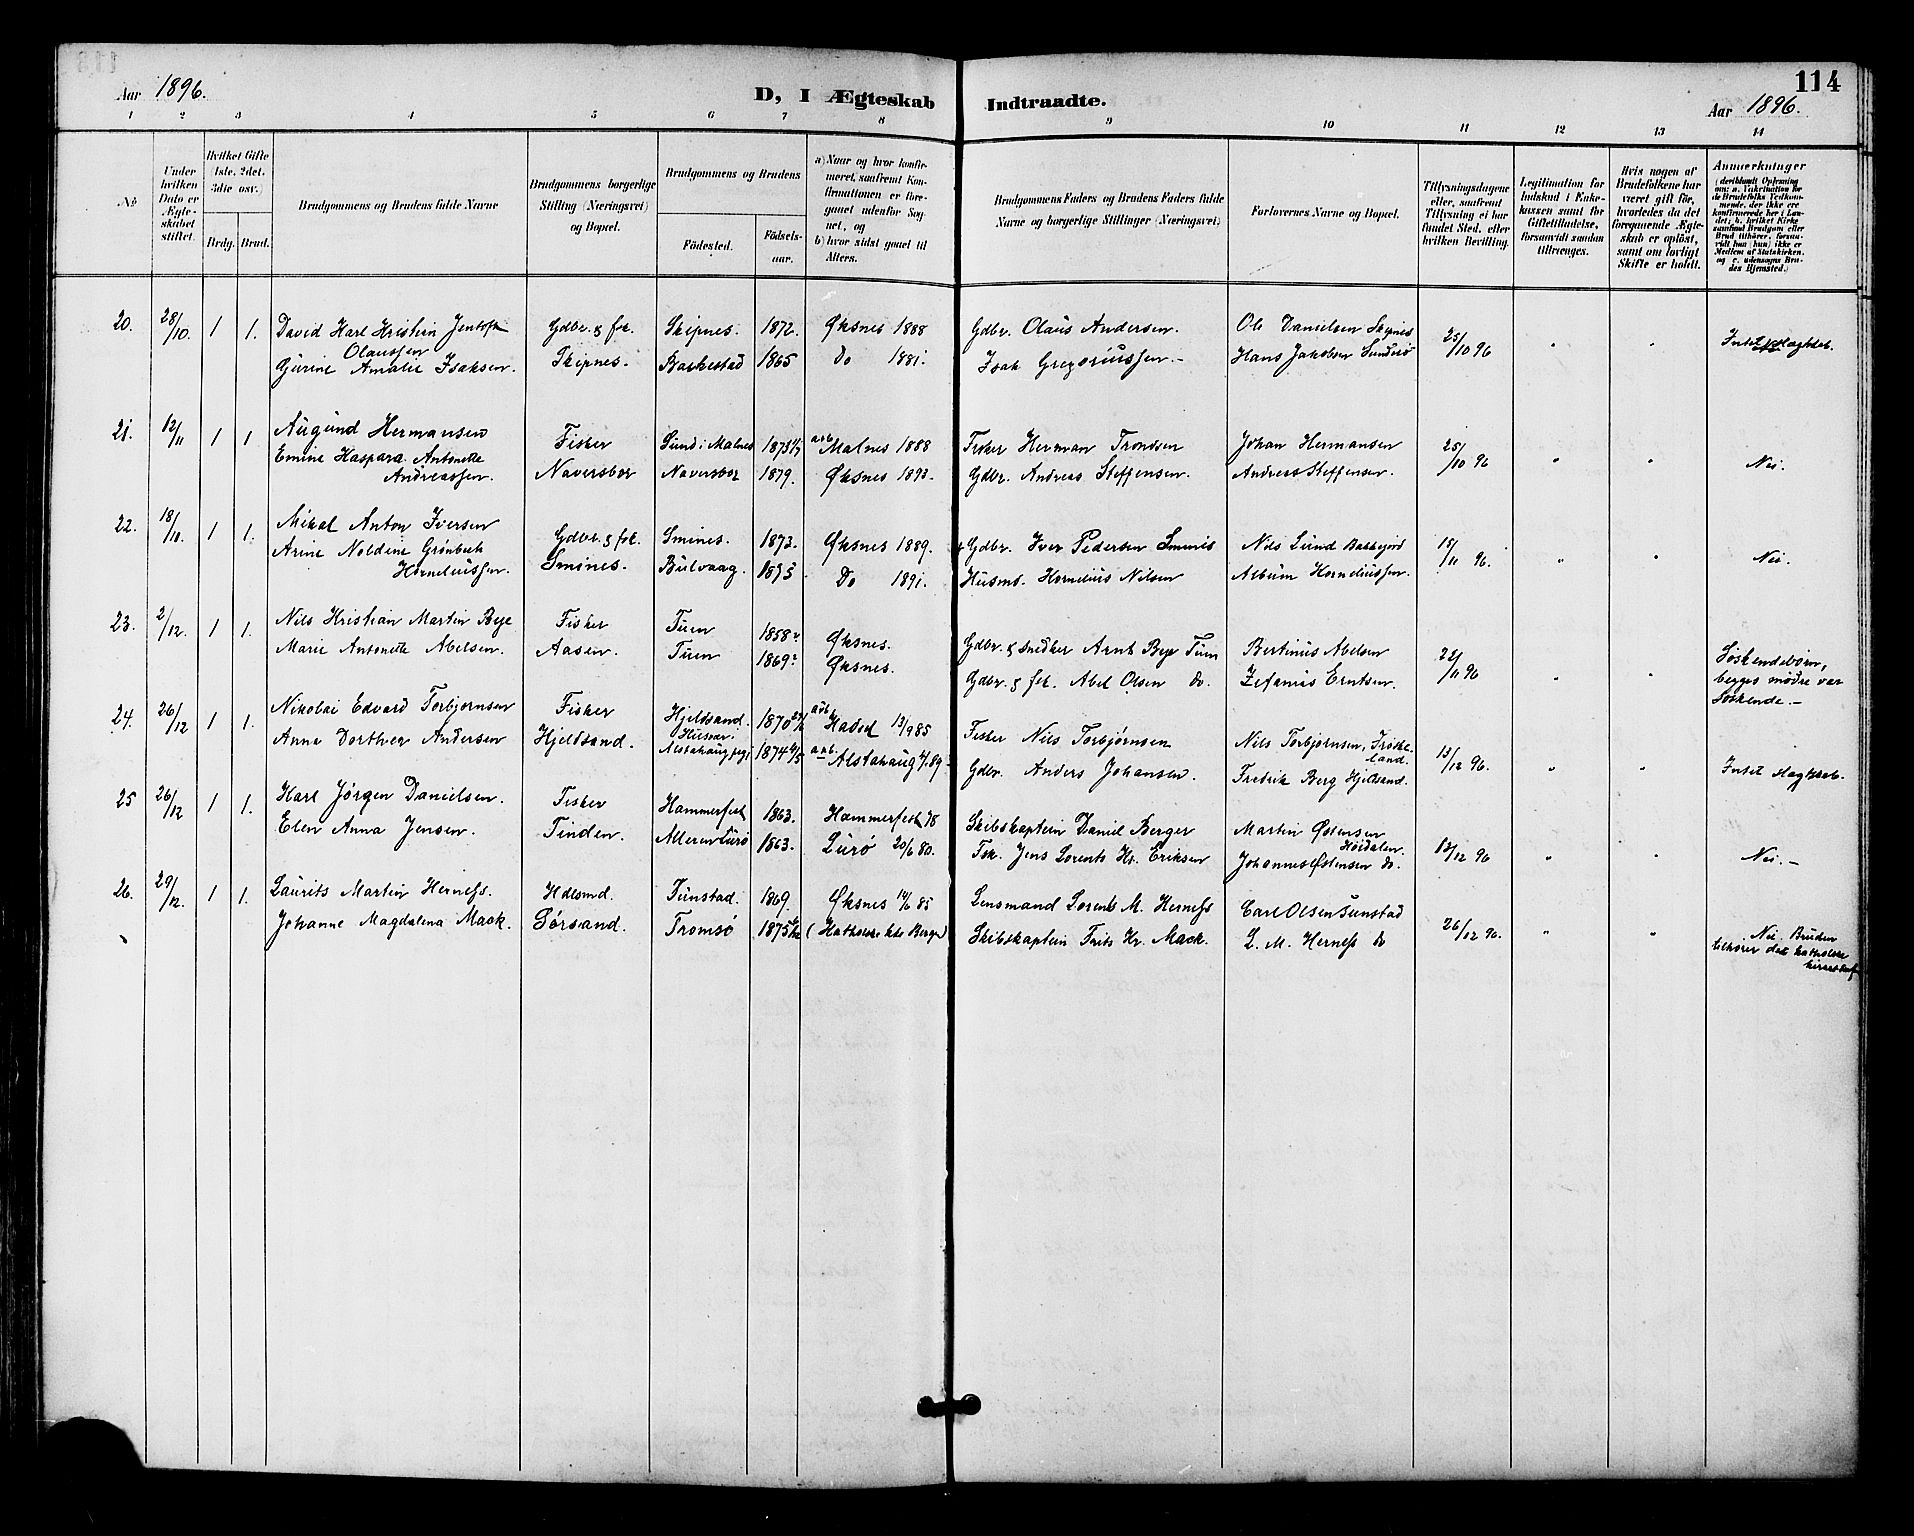 114
Aar 1896.
D, I Ægteskab Indtraadte.
Aar 1896.
1 2 3 4 5 6 7 8 9 10 11 12 13 14
No
Under hvilken Dato er Ægteskabet stiftet.
Hvilket Gifte (1ste, 2det, 3die osv.)
Brdg. Brud.
Brudgommens og Brudens fulde Navne
Brudgommens borgerlige Stilling (Næringsvei) og Bopæl.
Brudgommens og Brudens
Födested.
Födsels-aar.
a) Naar og hvor konfirmeret, saafremt Konfirmationen er foregaaet udenfor Sognet, og
b) hvor sidst gaaet til Alters.
Brudgommens Faders og Brudens Faders fulde Navne og borgerlige Stillinger (Næringsvei)
Forlovernes Navne og Bopæl.
Tillysningsdagene eller, saafremt Tillysning ei har fundet Sted, efter hvilken Bevilling.
Legitimation for Indskud i Enkekassen samt for Giftetilladelse, forsaavidt saadan tiltrænges.
Hvis nogen af Brudefolkene har været gift før, hvorledes da det foregaaende Ægteskab er oplöst, samt om lovligt Skifte er holdt.
Anmerkninger (deriblandt Oplysning om: a. Vakcination for de Brudefolks Vedkommende, der ikke ere konfirmerede her i Landet; b. hvilket Kirkesamfund Brudgom eller Brud tilhører, forsaavidt han (hun) ikke er Medlem af Statskirken, og c. udensogns Brudes Hjemsted.)
20. 28/10. 1 1. David Karl Kristein Jentoft Olaussen Gdbr. & fsk. Skipnes. 1872. Øksnes 1888 Gdbr. Olaus Andersen. Ole Danielsen Skipnes 25/10 96 " "
Gjurine Amalie Isaksen. Skipnes. Barkestad 1865 Do 1881. Isak Gregoriussen. - Hans Jakobsen
21. 12/11 1 1. Augund Hermansen Fisker Sund i Malnes 1873 Malnes 1888 Fisker Herman Trondsen Johan Hermansen 25/10 96 " " Nei.
Emine Kaspara Antonette Andreassen. Naversbor Naversbor 1879. Øksnes 1893. Gdbr. Andreas Steffensen. Andreas Steffensen.
22. 18/10. 1 1. Mikal Anton Iversen Gdbr. & fsk. Smines. 1873. Øksnes 1889. Gdbr. Iver Pedersen Smines Nils Lund 15/11 96. " " Nei.
Arine Noldine Grønbeck Korneliussen. Smines. Bulvaag. 1875 Do 1891. Husms. Kornelius Nilsen Album Korneliussen.
23. 2/12. 1 1. Nils Kristian Martin Bye Fisker Tuen 1858 Øksnes. Gdbr. & snedker Arnt Bye Tuen Bertinus Abelsen 22/11 96 " " Søskendebörn, begges mödre var Søskende. -
Marie Antonette Abelsen. Aasen. Tuen 1869 Øksnes. Gdbr. & fsk. Abel Olsen do. Zefanias Erntsen.
24. 26/12 1 1. Nikolai Edvard Torbjørnsen Fisker Hjeldsand. 1870 Hadsel 13/9 85 Fisker Nils Torbjørnsen Nils Torbjørnsen, 13/12 96. " "
Anna Dorthea Andersen Hjeldsand. Alstahaug 1874 Alstahaug 89 - Gdbr. Anders Johansen. Fredrik Berg Hjeldsand.
25 26/12 1 1. Karl Jørgen Danielsen. Fisker Hammerfest 1863. Hammerfest 78 Skibskaptein Daniel Berger Martin Østensen 13/12 96 " " Nei. -
Elen Anna Jensen. Tinden. Luro 1863. Lurö 20/6 80. Fsk. Jens Lorents Kr. Eriksen Johannes Østensen do.
26. 29/12. 1 1. Laurits Martin Herness. Hdlsmd. Tunstad. 1869. Øksnes 14/6 85 Lensmand Lorents M. Herness Carl Olsen Tunstad 26/12 96. " " Nei. Bruden tilhører det katholske
Johanne Magdalena Mack. Sørsand. Tromsö 1875 Skibskaptein Frits Kr. Mack. L. M. Herness do